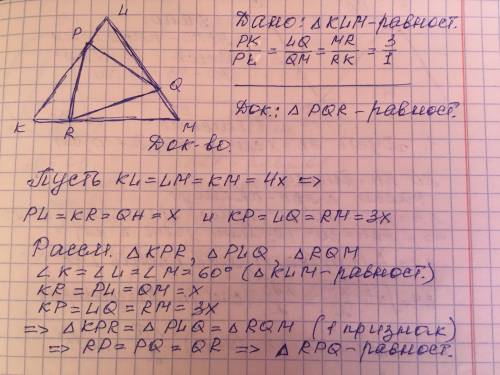 L
P
Q
K
R
M
Дано: △KLM-равност.
PK/PL = LQ/QM = MR/RK = 3/1
Док.: △PQR-равност.
Док-во.
Пусть KL=LM=KM=4x =>
PL=KR=QM=x и KP=LQ=RM=3x
Рассм. △KPR, △PLQ, △RQM
∠K=∠L=∠M=60° (△KLM-равност.)
KR=PL=QM=x
KP=LQ=RM=3x
=> △KPR=△PLQ=△RQM (1 признак)
=> RP=PQ=QR => △RPQ-равност.